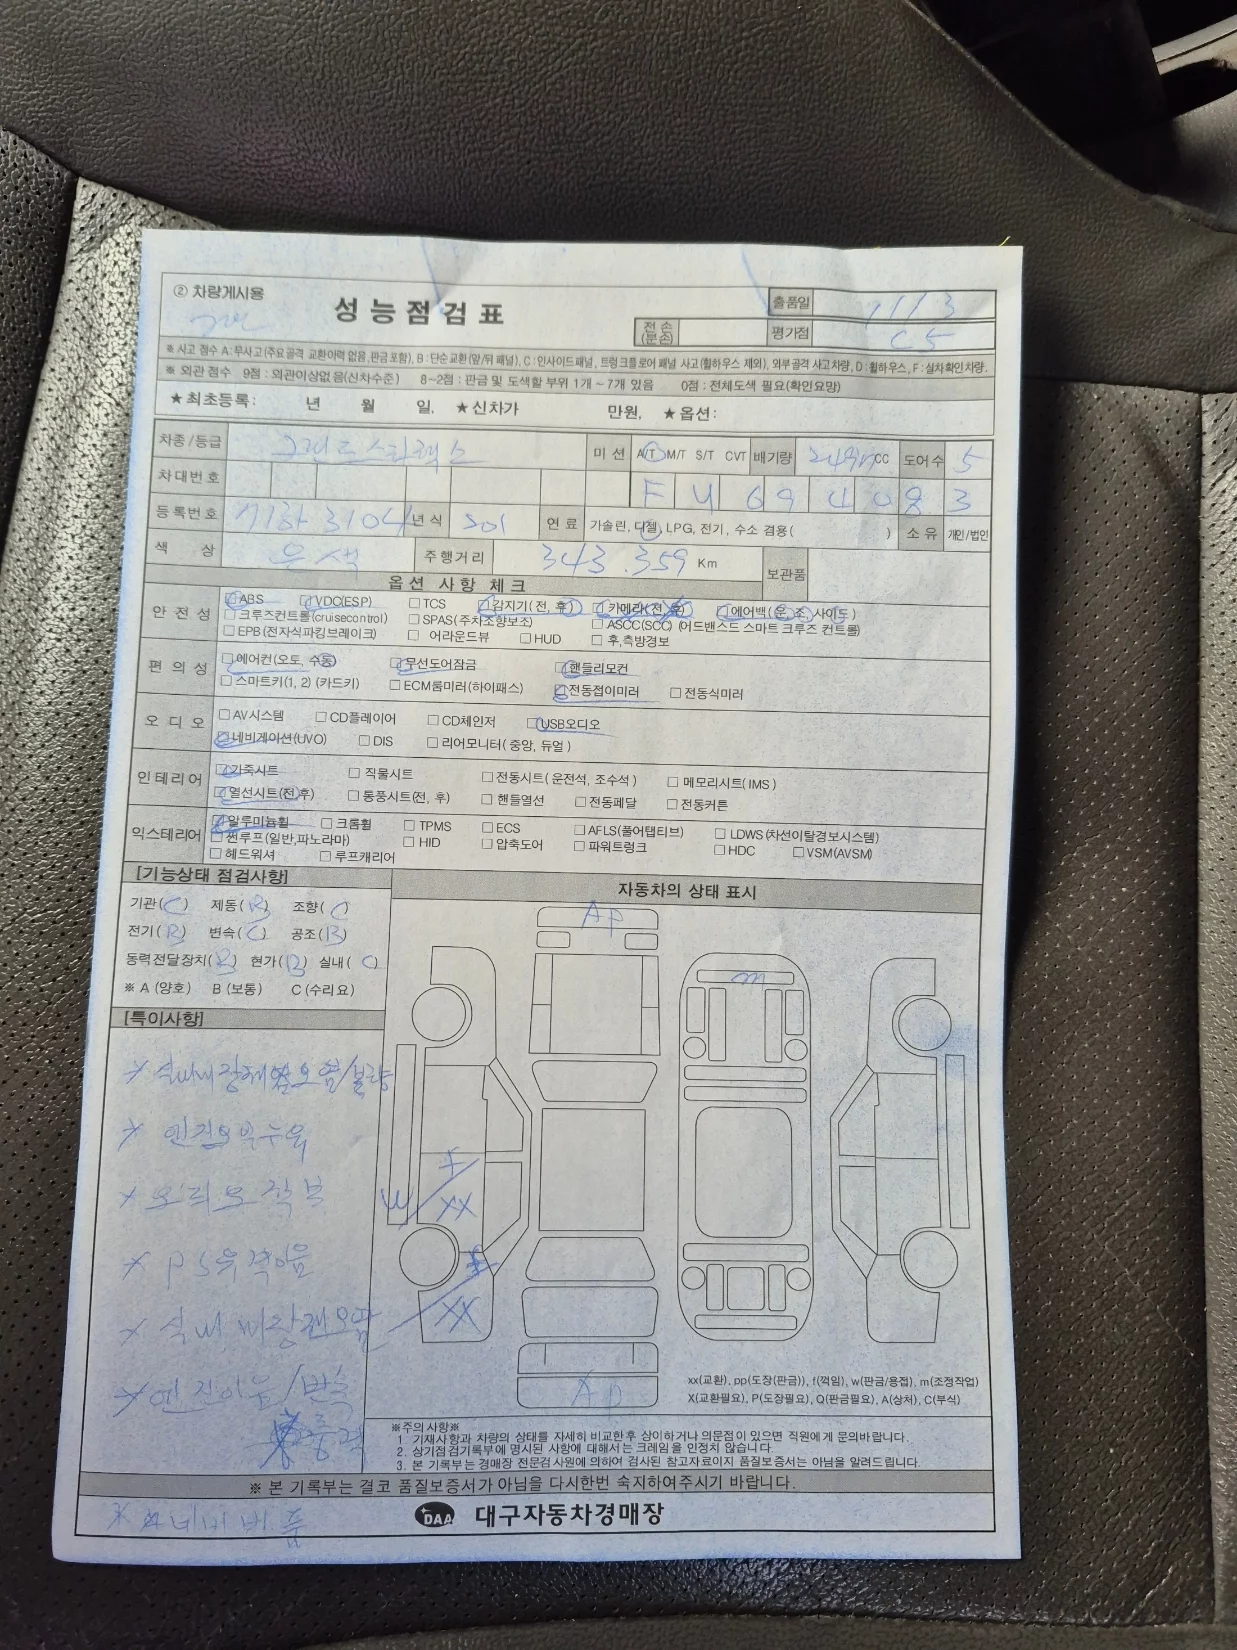 ② 차량게시용
성능점검표
출품일 11/3
전손(분손) 평가점 C5
※ 사고 점수 A : 무사고(주요골격 교환이력 없음,판금포함), B : 단순교환(앞/뒤 패널), C : 인사이드패널, 트렁크플로어 패널 사고(휠하우스 제외), 외부골격 사고차량, D : 휠하우스, F : 실차확인차량.
※ 외관 점수 9점 : 외관이상없음(신차수준) 8~2점 : 판금 및 도색할 부위 1개 ~ 7개 있음 0점 : 전체도색 필요(확인요망)
★최초등록: 년 월 일, ★신차가 만원, ★옵션:
차종/등급 그랜드스타렉스 미션 A/T M/T S/T CVT 배기량 2497CC 도어수 5
차대번호 F U 6 9 4 0 8 3
등록번호 3104 년식 연료 가솔린, 디젤, LPG, 전기, 수소 겸용( ) 소유 개인/법인
색상 은색 주행거리 343.359 Km 보관품
옵션 사항 체크
안전성 □ABS □VDC(ESP) □TCS □감지기(전, 후) □카메라(전, 후) □에어백(운, 조, 사이드)
□크루즈컨트롤(cruisecontrol) □SPAS(주차조향보조) □ASCC(SCC) (어드밴스드 스마트 크루즈 컨트롤)
□EPB(전자식파킹브레이크) □어라운드뷰 □HUD □후,측방경보
편의성 □에어컨(오토, 수동) □무선도어잠금 □핸들리모컨
□스마트키(1, 2) (카드키) □ECM룸미러(하이패스) □전동접이미러 □전동식미러
오디오 □AV시스템 □CD플레이어 □CD체인저 □USB오디오
□네비게이션(UVO) □DIS □리어모니터(중앙, 듀얼)
인테리어 □가죽시트 □직물시트 □전동시트(운전석, 조수석) □메모리시트(IMS)
□열선시트(전,후) □통풍시트(전, 후) □핸들열선 □전동페달 □전동커튼
익스테리어 □알루미늄휠 □크롬휠 □TPMS □ECS □AFLS(풀어탭티브) □LDWS(차선이탈경보시스템)
□썬루프(일반,파노라마) □HID □압축도어 □파워트렁크 □HDC □VSM(AVSM)
□헤드워셔 □루프캐리어
[기능상태 점검사항]
기관(C) 제동(B) 조향(C)
전기(B) 변속(C) 공조(B)
동력전달장치(B) 현가(B) 실내(C)
※ A (양호) B (보통) C (수리요)
[특이사항]
엔진오일누유
오리모작부
실내
엔진
자동차의 상태 표시
AP
m
f
W XX
f
XX
AP
xx(교환), pp(도장(판금)), f(꺽임), w(판금/용접), m(조정작업)
X(교환필요), P(도장필요), Q(판금필요), A(상처), C(부식)
※주의사항※
1. 기재사항과 차량의 상태를 자세히 비교한후 상이하거나 의문점이 있으면 직원에게 문의바랍니다.
2. 상기점검기록부에 명시된 사항에 대해서는 크레임을 인정치 않습니다.
3. 본 기록부는 경매장 전문검사원에 의하여 검사된 참고자료이지 품질보증서는 아님을 알려드립니다.
※ 본 기록부는 결코 품질보증서가 아님을 다시한번 숙지하여주시기 바랍니다.
DAA 대구자동차경매장